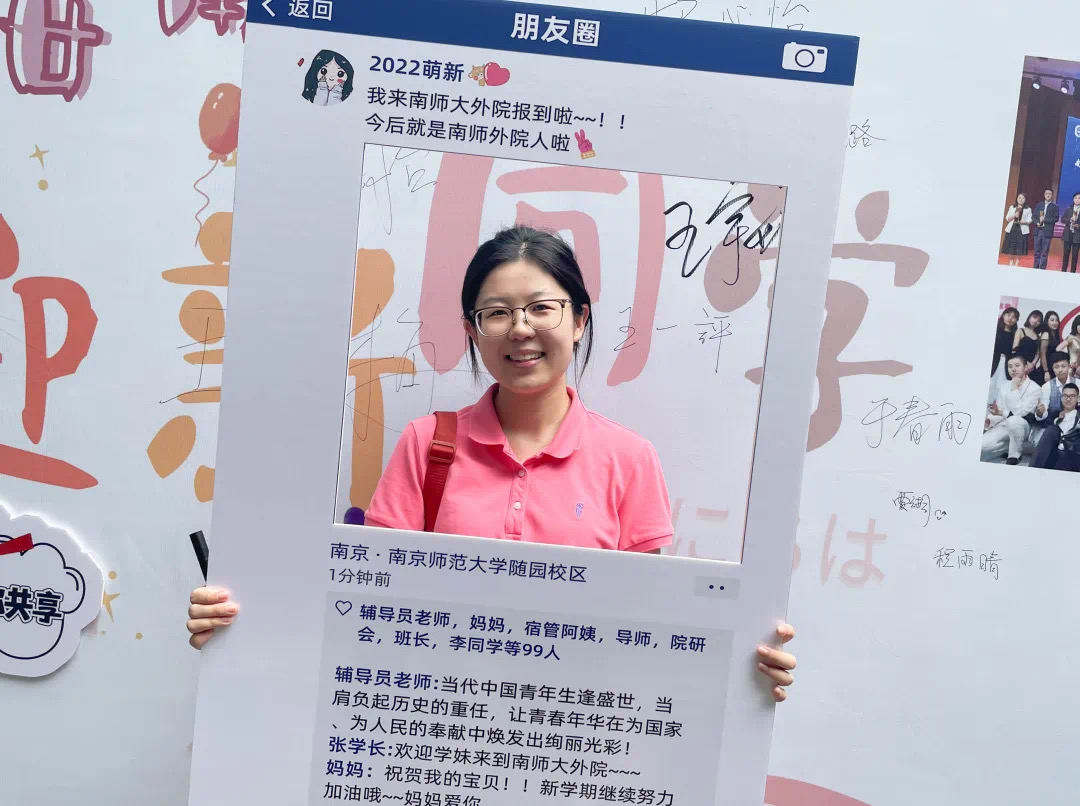 返回
朋友圈
2022萌新
我来南师大外院报到啦~~！！
今后就是南师外院人啦
同学
王一評
于春雨
程雨晴
にちは
共享
南京·南京师范大学随园校区
1分钟前
辅导员老师，妈妈，宿管阿姨，导师，院研
会，班长，李同学等99人
辅导员老师:当代中国青年生逢盛世，当
肩负起历史的重任，让青春年华在为国家
、为人民的奉献中焕发出绚丽光彩！
张学长:欢迎学妹来到南师大外院~~~
妈妈：祝贺我的宝贝！！新学期继续努力
加油哦~~妈妈爱你